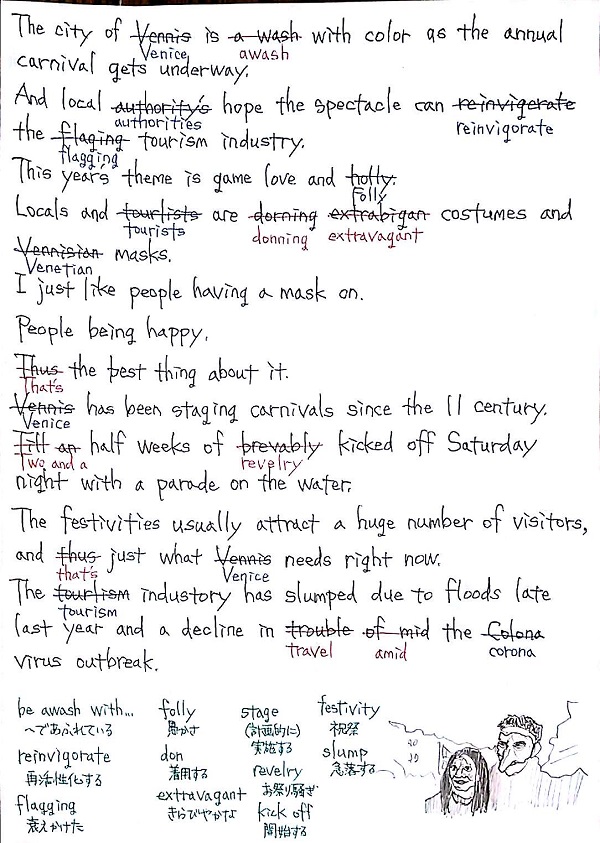 The city of Vennis is a wash with color as the annual
Venice awash
carnival gets underway.
And local authority's hope the spectacle can reinvigerate
authorities reinvigorate
the flaging tourism industry.
flagging
This year's theme is game love and holly.
Folly
Locals and tourlists are dorning extrabigan costumes and
tourists donning extravagant
Vennisian masks.
Venetian
I just like people having a mask on.
People being happy.
Thus the best thing about it.
That's
Vennis has been staging carnivals since the 11 century.
Venice
Fill an half weeks of brevably kicked off Saturday
Two and a revelry
night with a parade on the water.
The festivities usually attract a huge number of visitors,
and thus just what Vennis needs right now.
that's Venice
The tourlism industory has slumped due to floods late
tourism
last year and a decline in trouble of mid the Colona
travel amid corona
virus outbreak.
be awash with... folly stage festivity
〜であふれている 愚かさ (計画的に)実施する 祝祭
reinvigorate don revelry slump
再活性化する 着用する お祭り騒ぎ 急落する
flagging extravagant kick off
衰えかけた きらびやかな 開始する